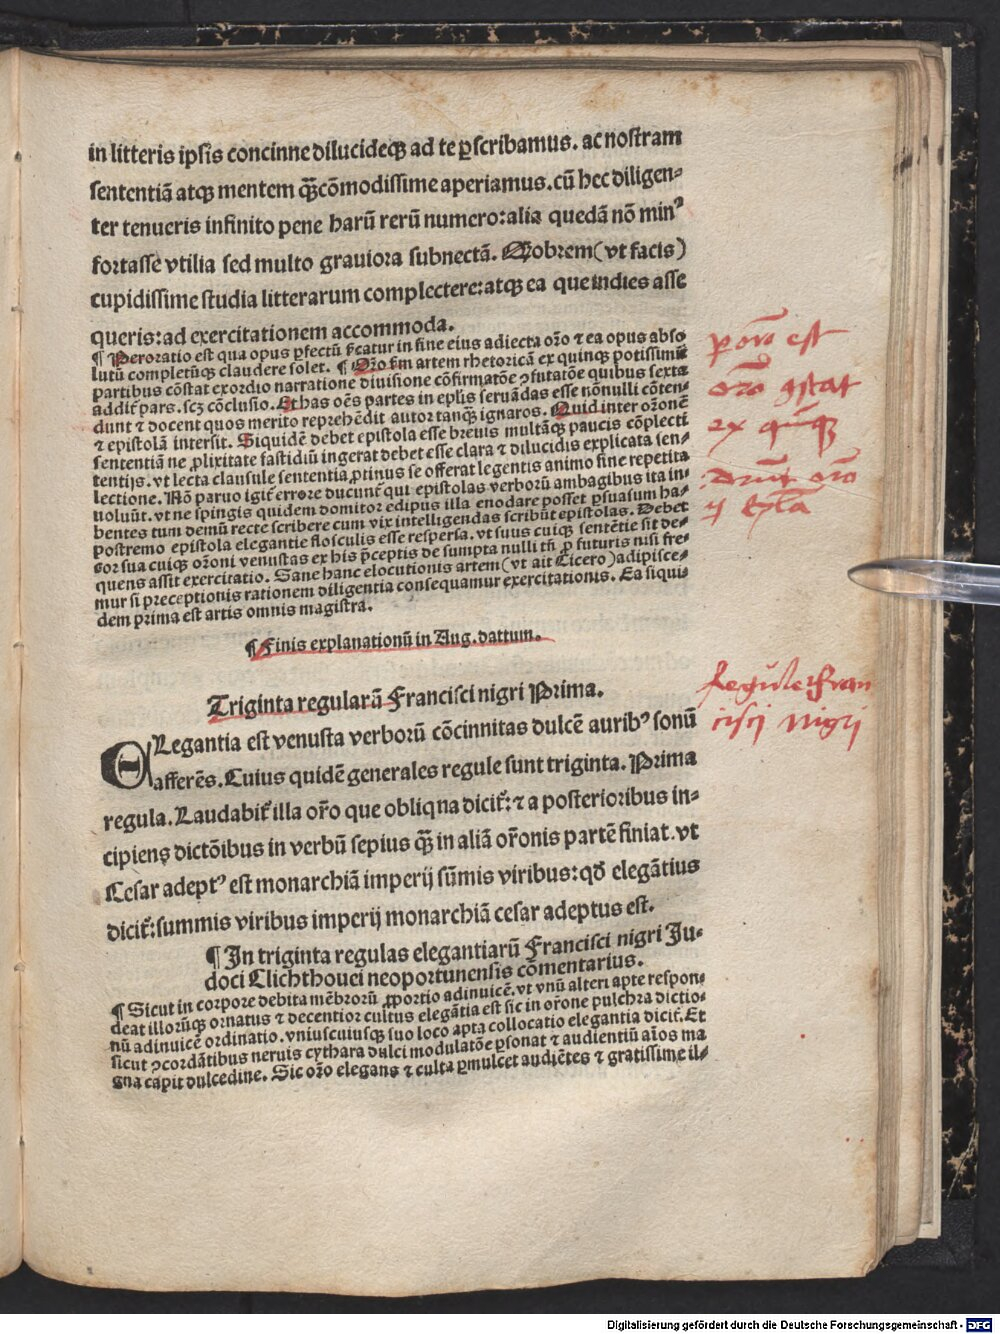 in litteris ipsis concinne dilucideqꝫ ad te ꝑscribamus. ac nostram
sententiã atqꝫ mentem q̃ꝫcõmodissime aperiamus. cũ hec diligen⸗
ter tenueris infinito pene harũ rerũ numero: alia quedã nõ minꝰ
fortasse vtilia sed multo graviora subnectã. Quobrem (vt facis)
cupidissime studia litterarum complectere: atqꝫ ea que indies asse
queris: ad exercitationem accommoda.
¶ Peroratio est qua opus ꝑfectũ f̃catur in fine eius adiecta or̃o ⁊ ea opus abso
lutũ completũqꝫ claudere solet. ¶ Or̃o ẽm artem rhetoricã ex quinqꝫ potissimũ
partibus cõstat exordio narratione diuisione cõfirmatõe ꝯfutatõe quibus sexta
addit̃ pars. scꝫ cõclusio. Et has oẽs partes in eplis seruãdas esse nõnulli cõten⸗
dunt ⁊ docent quos merito reprehẽdit autor tanqꝫ̃ ignaros. Quid inter or̃onẽ
⁊ epistolã intersit. Siquidẽ debet epistola esse breuis multãqꝫ paucis cõplecti
sententiã ne ꝓlixitate fastidiũ ingerat debet esse clara ⁊ dilucidis explicata sen⸗
tentijs. vt lecta clausule sententia ꝓtinus se offerat legentis animo sine repetita
lectione. Nõ paruo igit̃ errore ducunt̃ qui epistolas verborũ ambagibus ita in⸗
uoluũt. vt ne spingis quidem domitor edipus illa enodare posset ꝑsuasum ha⸗
bentes tum demũ recte scribere cum vix intelligendas scribũt epistolas. Debet
postremo epistola elegantie flosculis esse respersa. vt suus cuiqꝫ sentẽtie sit de⸗
cor sua cuiqꝫ or̃oni venustas ex his p̃ceptis de sumpta nulli tñ ꝓ futuris nisi fre⸗
quens assit exercitatio. Sane hanc elocutionis artem (vt ait Cicero) adipisce⸗
mur si preceptionis rationem diligentia consequamur exercitationis. Ea siqui⸗
dem prima est artis omnis magistra.
¶ Finis explanationũ in Aug. dattum.
Triginta regularũ Francisci nigri Prima.
ELegantia est venusta verborũ cõcinnitas dulcẽ auribꝰ sonũ
afferẽs. Cuius quidẽ generales regule sunt triginta. Prima
regula. Laudabit̃ illa or̃o que obliqua dicit̃: ⁊ a posterioribus in⸗
cipiens dictõibus in verbũ sepius qꝫ̃ in aliã or̃onis partẽ finiat. vt
Cesar adeptꝰ est monarchiã imperij sũmis viribus: qđ elegãtius
dicit̃: summis viribus imperij monarchiã cesar adeptus est.
¶ In triginta regulas elegantiarũ Francisci nigri Ju⸗
doci Clichthouei neoportunensis cõmentarius.
¶ Sicut in corpore debita mẽbrorũ ꝓportio adinuicẽ. vt vnũ alteri apte respon⸗
deat illorũqꝫ ornatus ⁊ decentior cultus elegãtia est sic in or̃one pulchra dictio⸗
nũ adinuicẽ ordinatio. vniuscuiusqꝫ suo loco apta collocatio elegantia dicit̃. Et
sicut ꝯcordãtibus neruis cythara dulci modulatõe ꝑsonat ⁊ audientiũ aĩos ma
gna capit dulcedine. Sic or̃o elegans ⁊ culta ꝑmulcet audiẽtes ⁊ gratissime il⸗
ꝑoro est
or̃o ꝯstat
ex quĩqꝫ
or̃o
epl̃a
Regule fran
cisci nigri
Digitalisierung gefördert durch die Deutsche Forschungsgemeinschaft - DFG